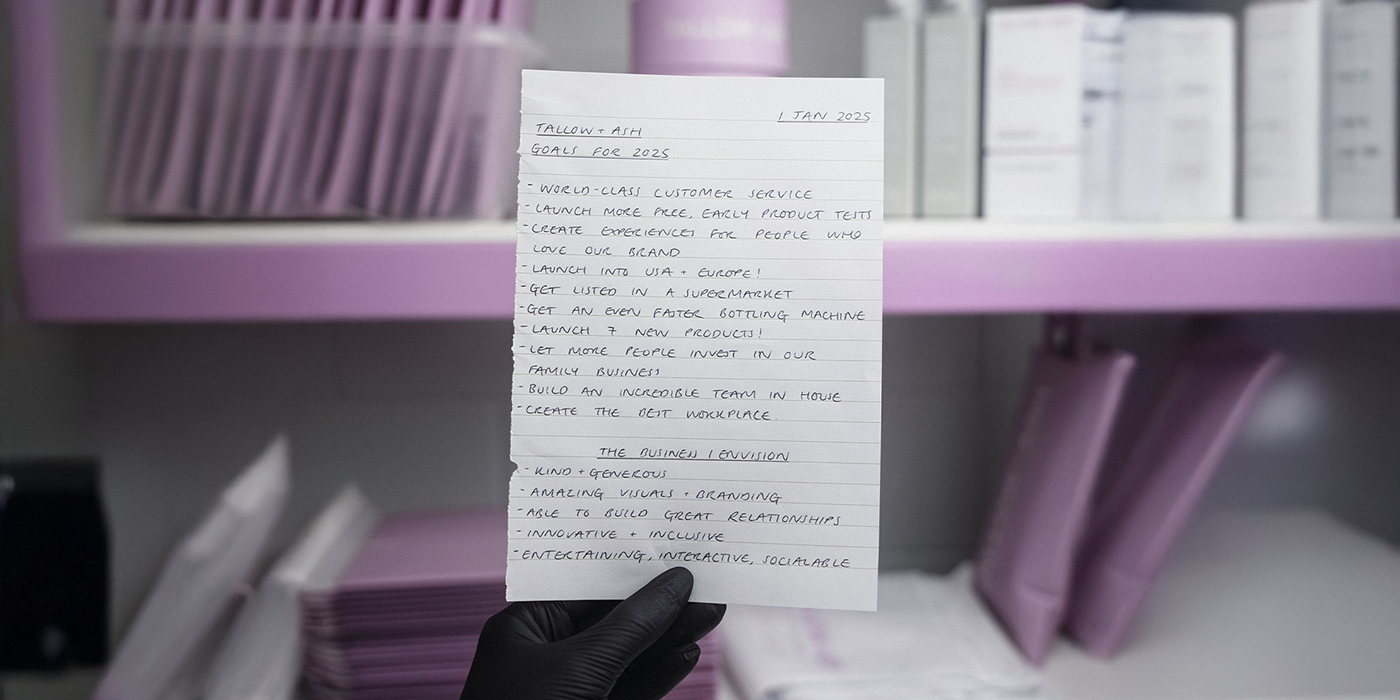 1 JAN 2025
TALLOW + ASH
GOALS FOR 2025
- WORLD-CLASS CUSTOMER SERVICE
- LAUNCH MORE FREE, EARLY PRODUCT TESTS
- CREATE EXPERIENCES FOR PEOPLE WHO
LOVE OUR BRAND
- LAUNCH INTO USA + EUROPE!
- GET LISTED IN A SUPERMARKET
- GET AN EVEN FASTER BOTTLING MACHINE
- LAUNCH 7 NEW PRODUCTS!
- LET MORE PEOPLE INVEST IN OUR
FAMILY BUSINESS
- BUILD AN INCREDIBLE TEAM IN HOUSE
- CREATE THE BEST WORKPLACE.
THE BUSINESS I ENVISION
- KIND + GENEROUS
- AMAZING VISUALS + BRANDING
- ABLE TO BUILD GREAT RELATIONSHIPS
- INNOVATIVE + INCLUSIVE
- ENTERTAINING, INTERACTIVE, SOCIALABLE